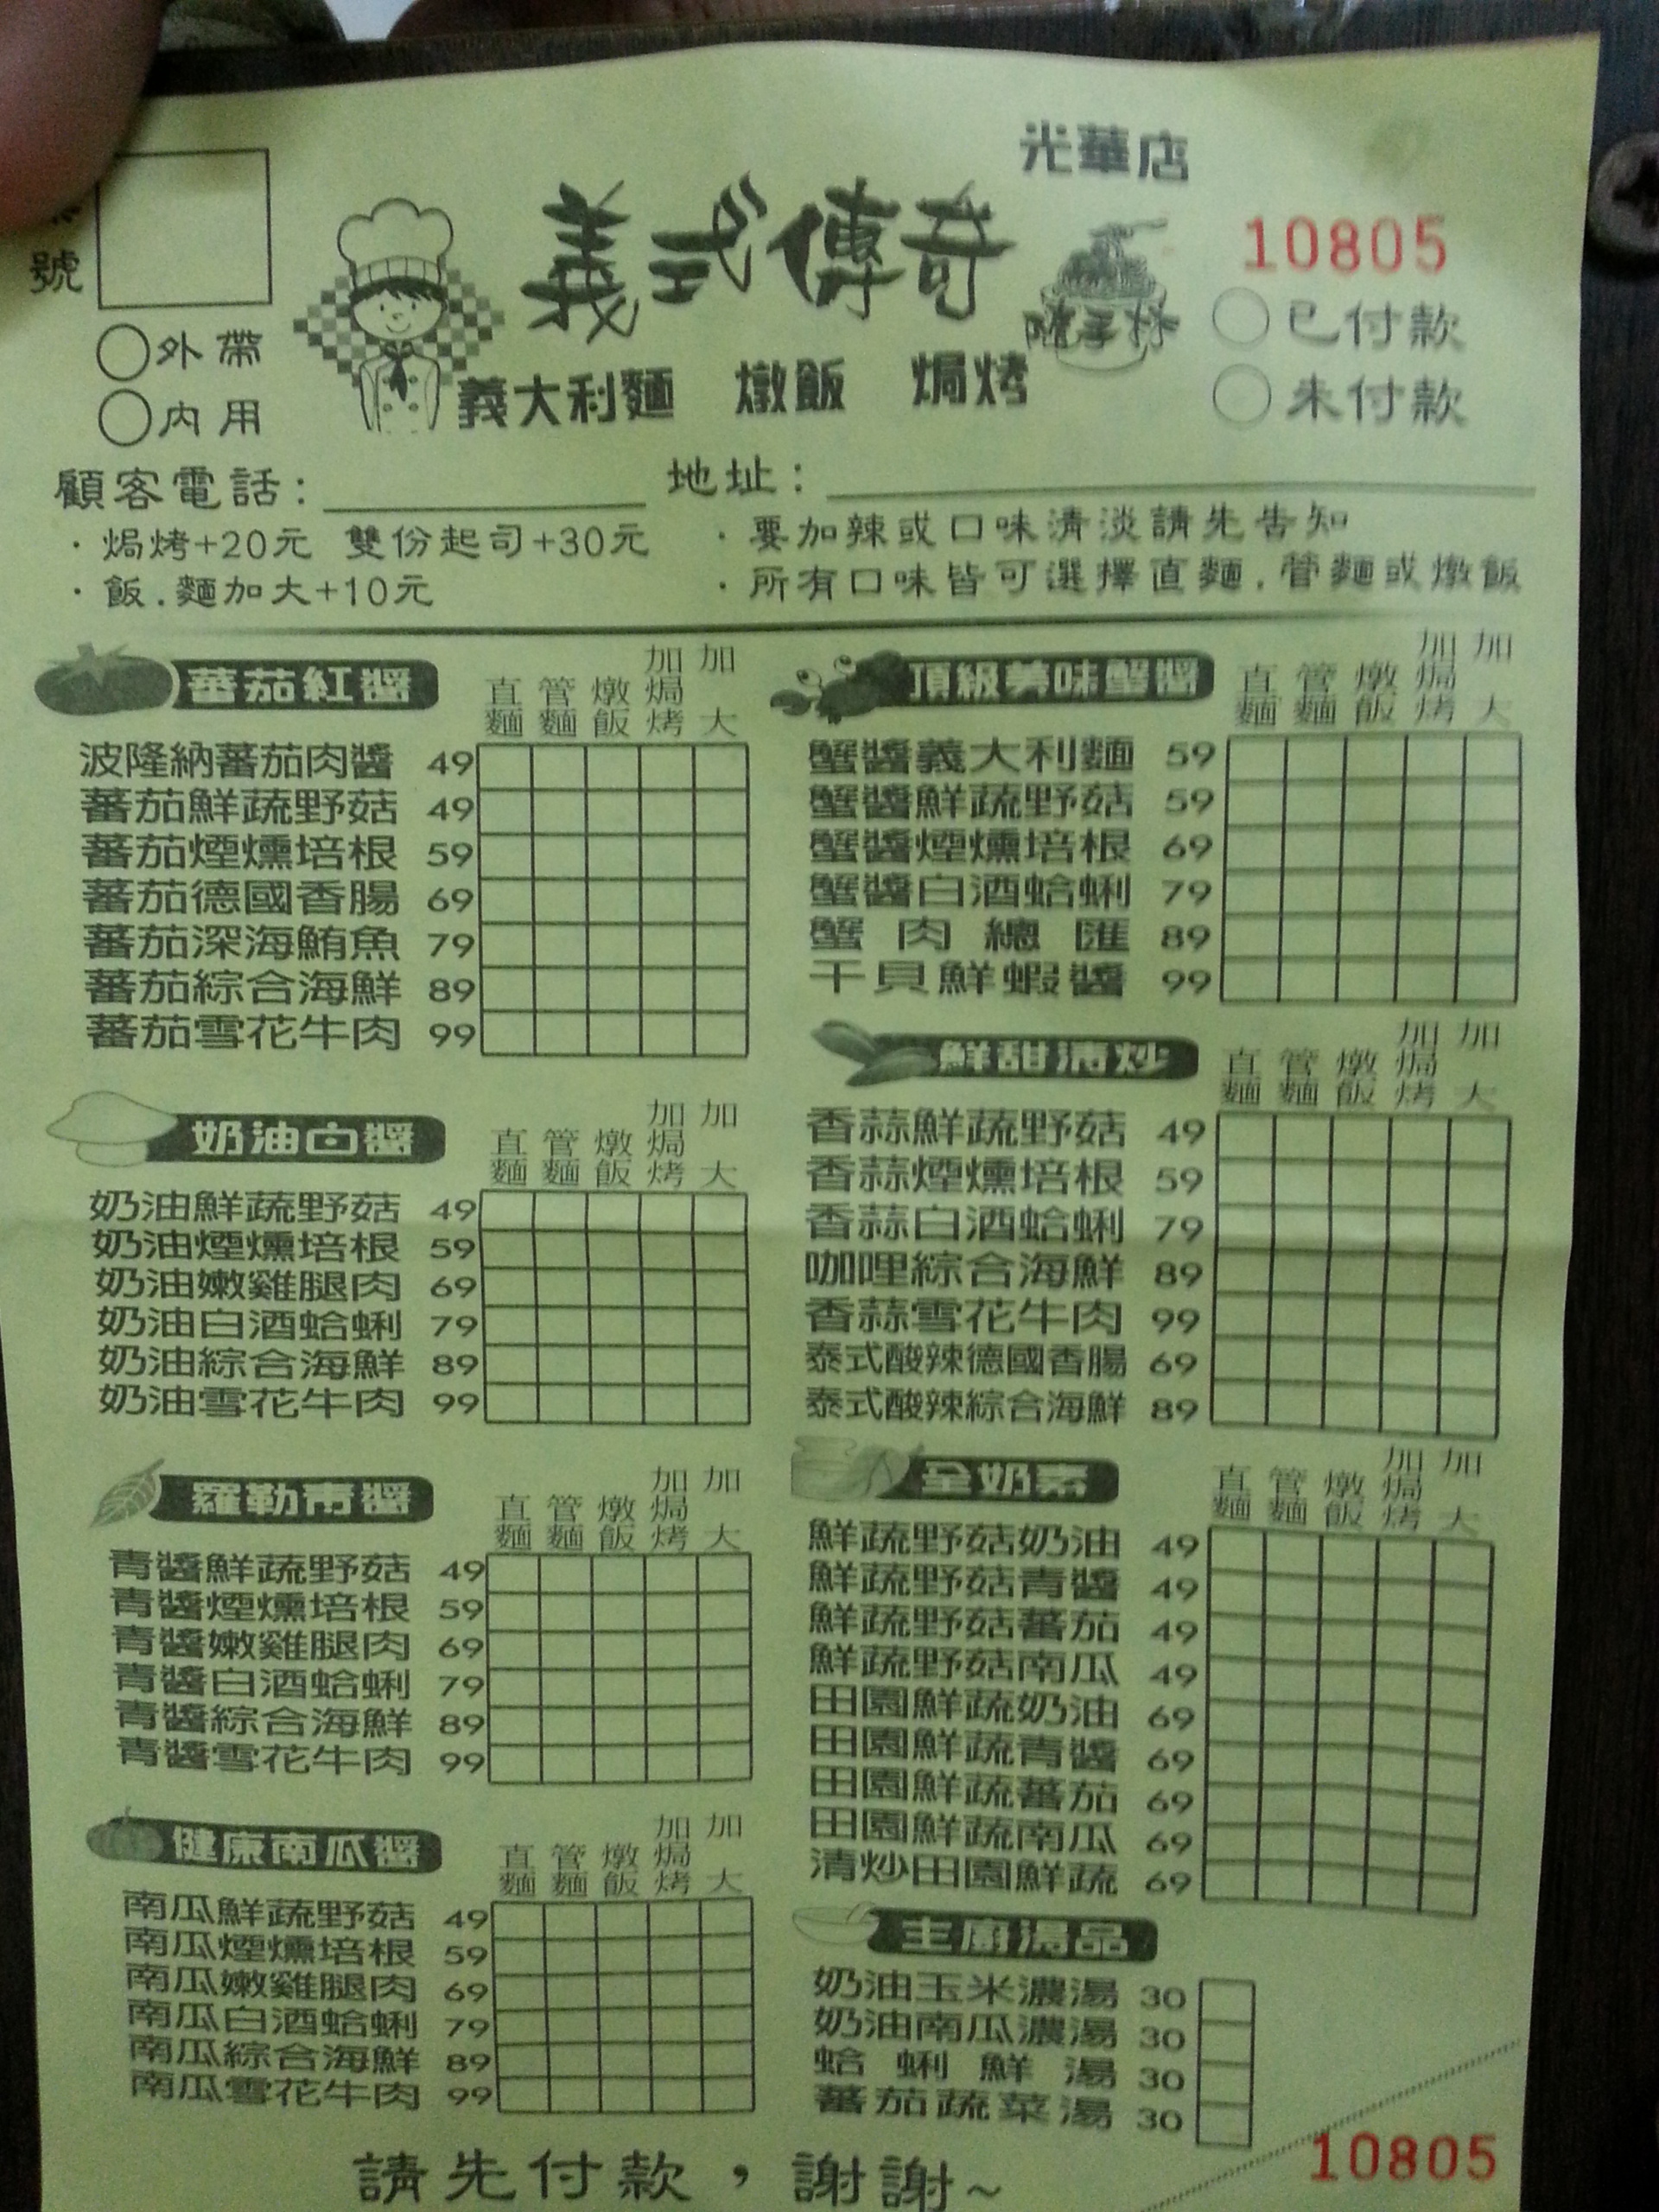 光華店
義式傳奇
隨手杯
10805
號
外帶
內用
已付款
未付款
義大利麵 燉飯 焗烤
顧客電話：
地址：
· 焗烤+20元 雙份起司+30元
· 飯.麵加大+10元
· 要加辣或口味清淡請先告知
· 所有口味皆可選擇直麵.管麵或燉飯
蕃茄紅醬 直麵 管麵 燉飯 加焗烤 加大
波隆納蕃茄肉醬 49
蕃茄鮮蔬野菇 49
蕃茄煙燻培根 59
蕃茄德國香腸 69
蕃茄深海鮪魚 79
蕃茄綜合海鮮 89
蕃茄雪花牛肉 99
奶油白醬 直麵 管麵 燉飯 加焗烤 加大
奶油鮮蔬野菇 49
奶油煙燻培根 59
奶油嫩雞腿肉 69
奶油白酒蛤蜊 79
奶油綜合海鮮 89
奶油雪花牛肉 99
羅勒青醬 直麵 管麵 燉飯 加焗烤 加大
青醬鮮蔬野菇 49
青醬煙燻培根 59
青醬嫩雞腿肉 69
青醬白酒蛤蜊 79
青醬綜合海鮮 89
青醬雪花牛肉 99
健康南瓜醬 直麵 管麵 燉飯 加焗烤 加大
南瓜鮮蔬野菇 49
南瓜煙燻培根 59
南瓜嫩雞腿肉 69
南瓜白酒蛤蜊 79
南瓜綜合海鮮 89
南瓜雪花牛肉 99
頂級美味蟹醬 直麵 管麵 燉飯 加焗烤 加大
蟹醬義大利麵 59
蟹醬鮮蔬野菇 59
蟹醬煙燻培根 69
蟹醬白酒蛤蜊 79
蟹肉總匯 89
干貝鮮蝦醬 99
鮮甜清炒 直麵 管麵 燉飯 加焗烤 加大
香蒜鮮蔬野菇 49
香蒜煙燻培根 59
香蒜白酒蛤蜊 79
咖哩綜合海鮮 89
香蒜雪花牛肉 99
泰式酸辣德國香腸 69
泰式酸辣綜合海鮮 89
全奶素 直麵 管麵 燉飯 加焗烤 加大
鮮蔬野菇奶油 49
鮮蔬野菇青醬 49
鮮蔬野菇蕃茄 49
鮮蔬野菇南瓜 49
田園鮮蔬奶油 69
田園鮮蔬青醬 69
田園鮮蔬蕃茄 69
田園鮮蔬南瓜 69
清炒田園鮮蔬 69
主廚湯品
奶油玉米濃湯 30
奶油南瓜濃湯 30
蛤蜊鮮湯 30
蕃茄蔬菜湯 30
請先付款，謝謝~
10805